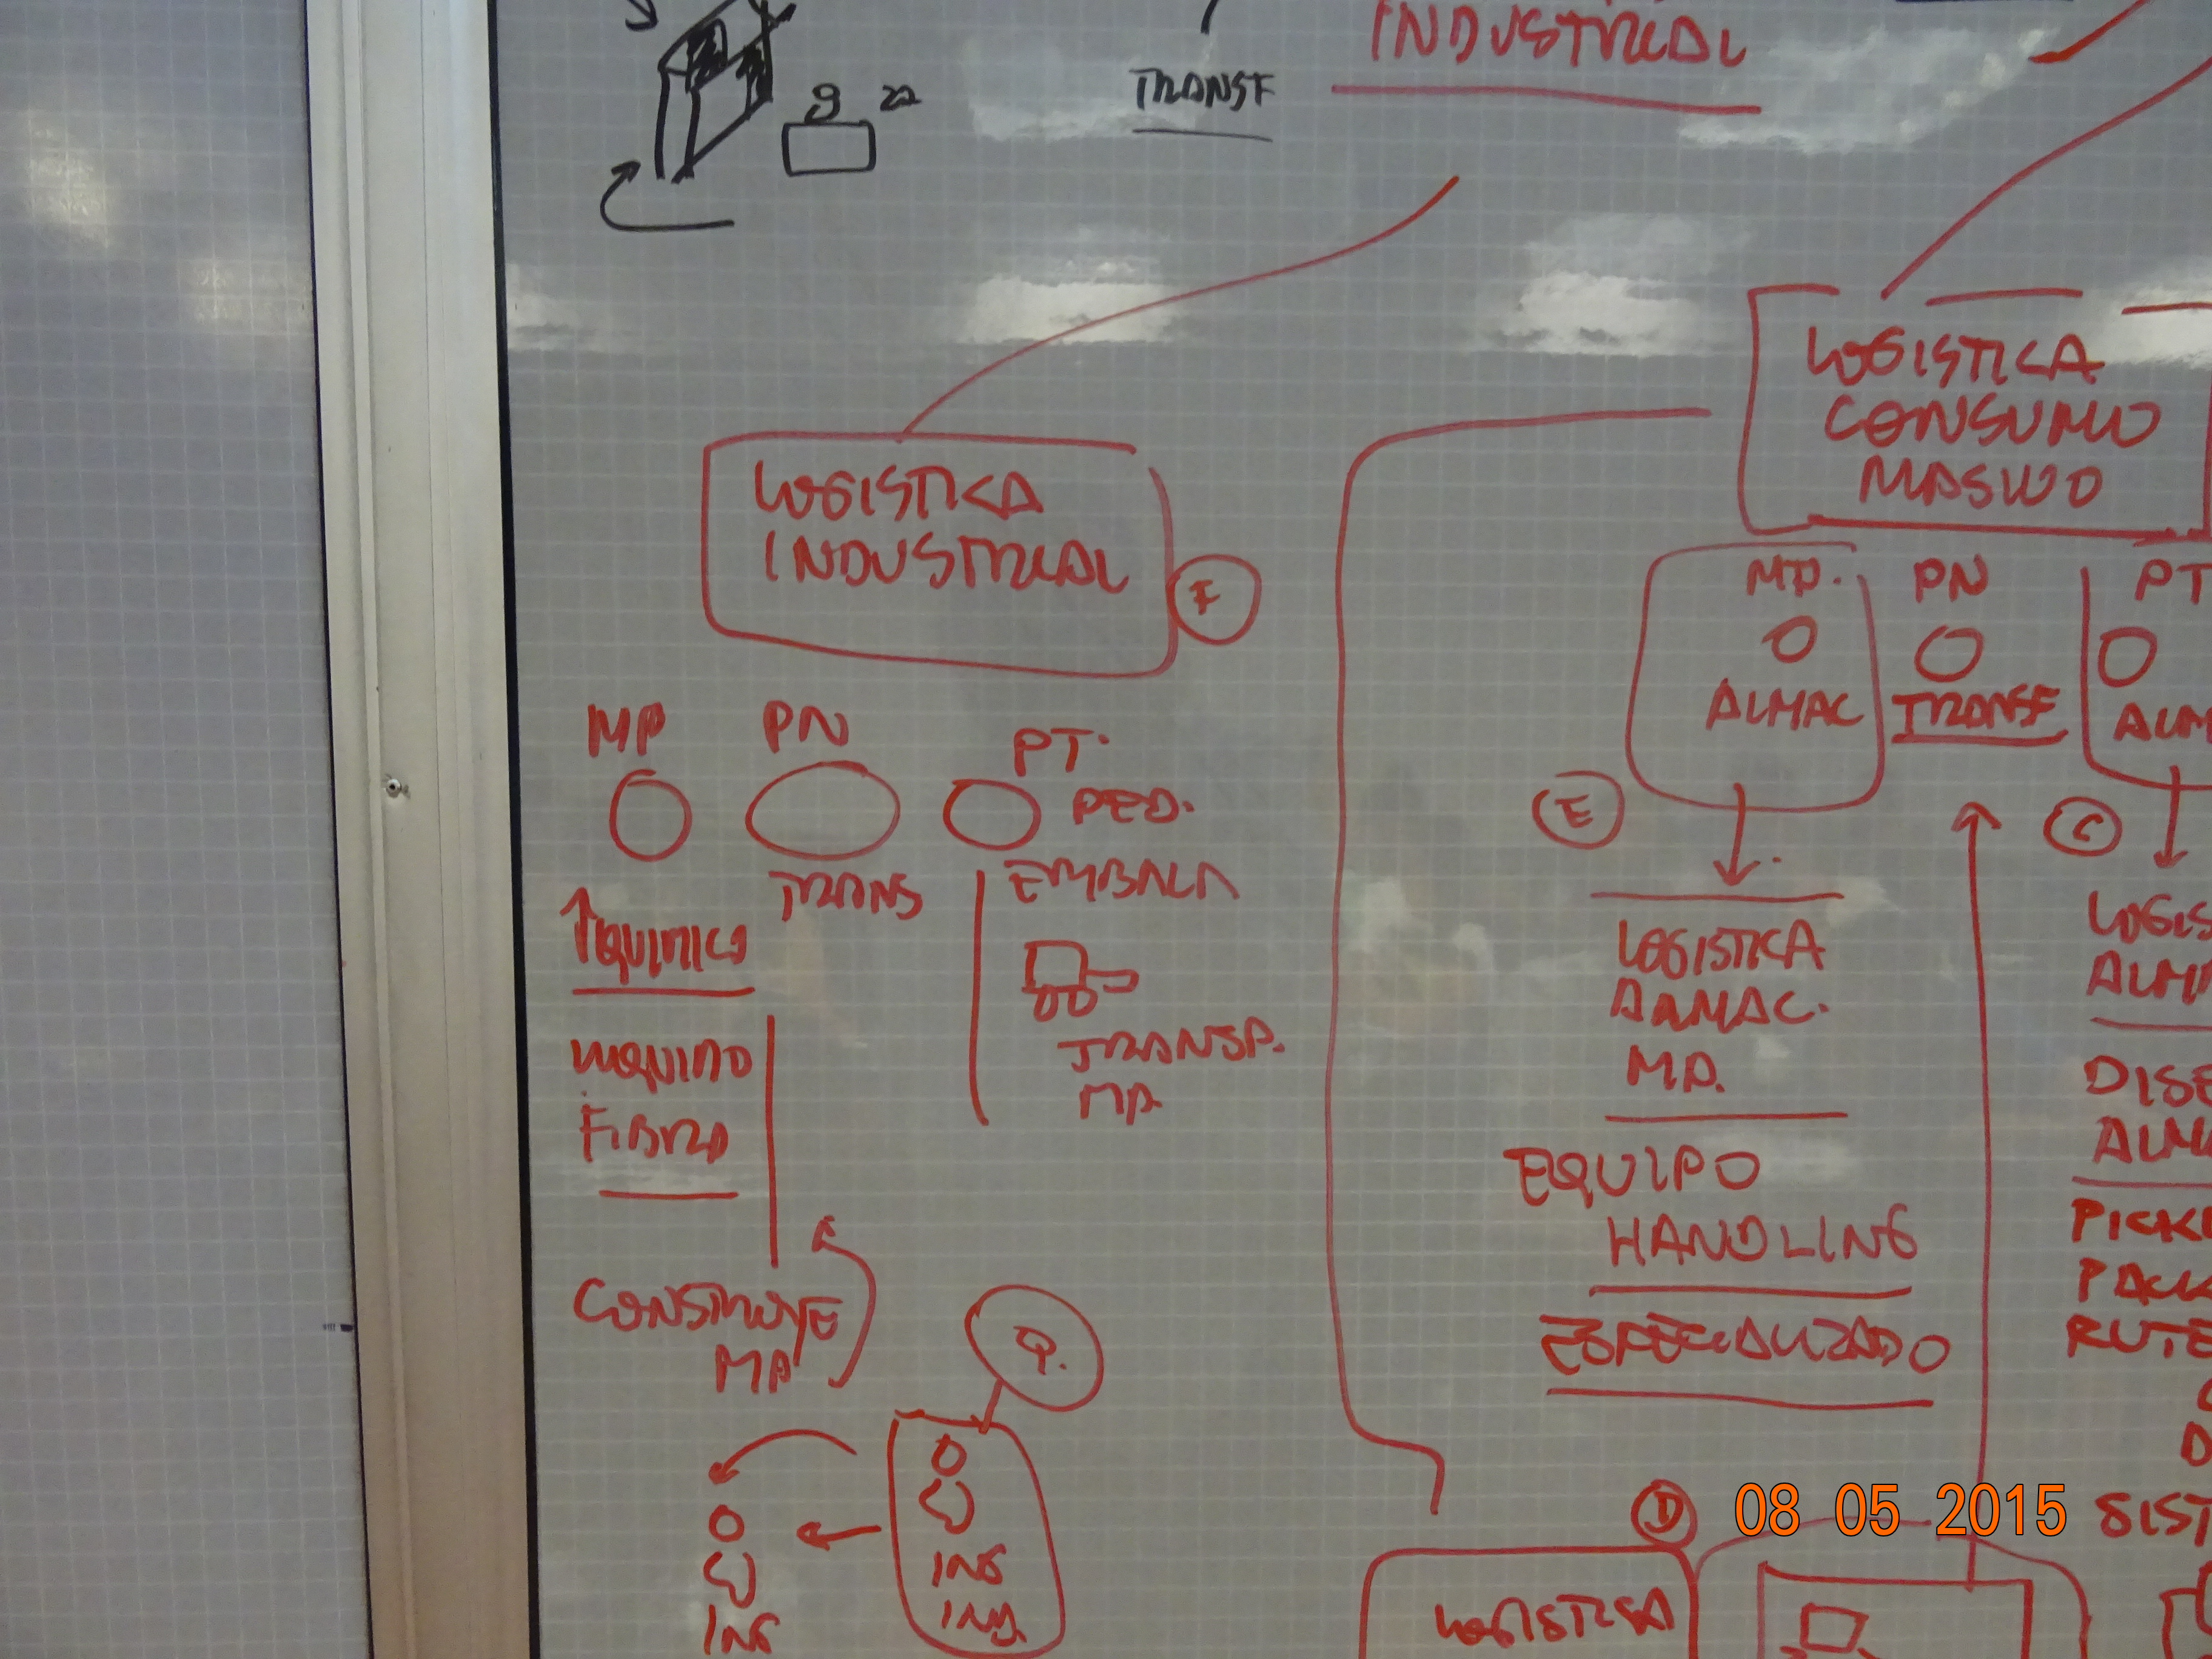 INDUSTRIAL
TRANSF
LOGISTICA
INDUSTRIAL
F
MP
PN
PT.
PED.
TRANS
EMBALA
QUIMICO
LIQUIDO
FIBRA
TRANSP.
MP.
CONSTRUYE
MP
Q.
ING
ING
ING.
LOGISTICA
CONSUMO
MASIVO
MP.
PN
PT
ALMAC
TRANSF
ALM
E
C
LOGISTICA
ALMAC.
MP.
EQUIPO
HANDLING
ESPECIALIZADO
LOGIS
ALMA
DISE
ALMA
PICK
PACK
RUTE
D
08 05 2015
SIST
LOGISTICA